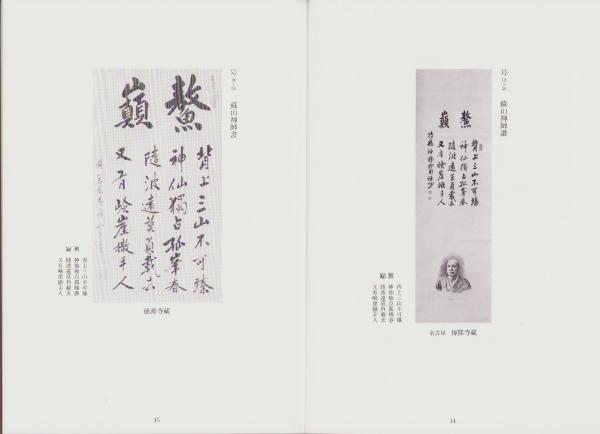 号
蘇山禅師讃
鰲
巓
背上三山不可臻
神仙獨占孤峯春
隨波遠莫負載去
又有嶮崖撒手人
鰲
巓
背上三山不可臻
神仙独占孤峰春
随波遠莫負載去
又有嶮崖撒手人
名古屋 傳隆寺蔵
14
号
蘇山禅師書
鰲
巓
背上三山不可臻
神仙獨占孤峯春
隨波遠莫負載去
又有嶮崖撒手人
鰲
巓
背上三山不可臻
神仙独占孤峰春
随波遠莫負載去
又有嶮崖撒手人
徳源寺蔵
15